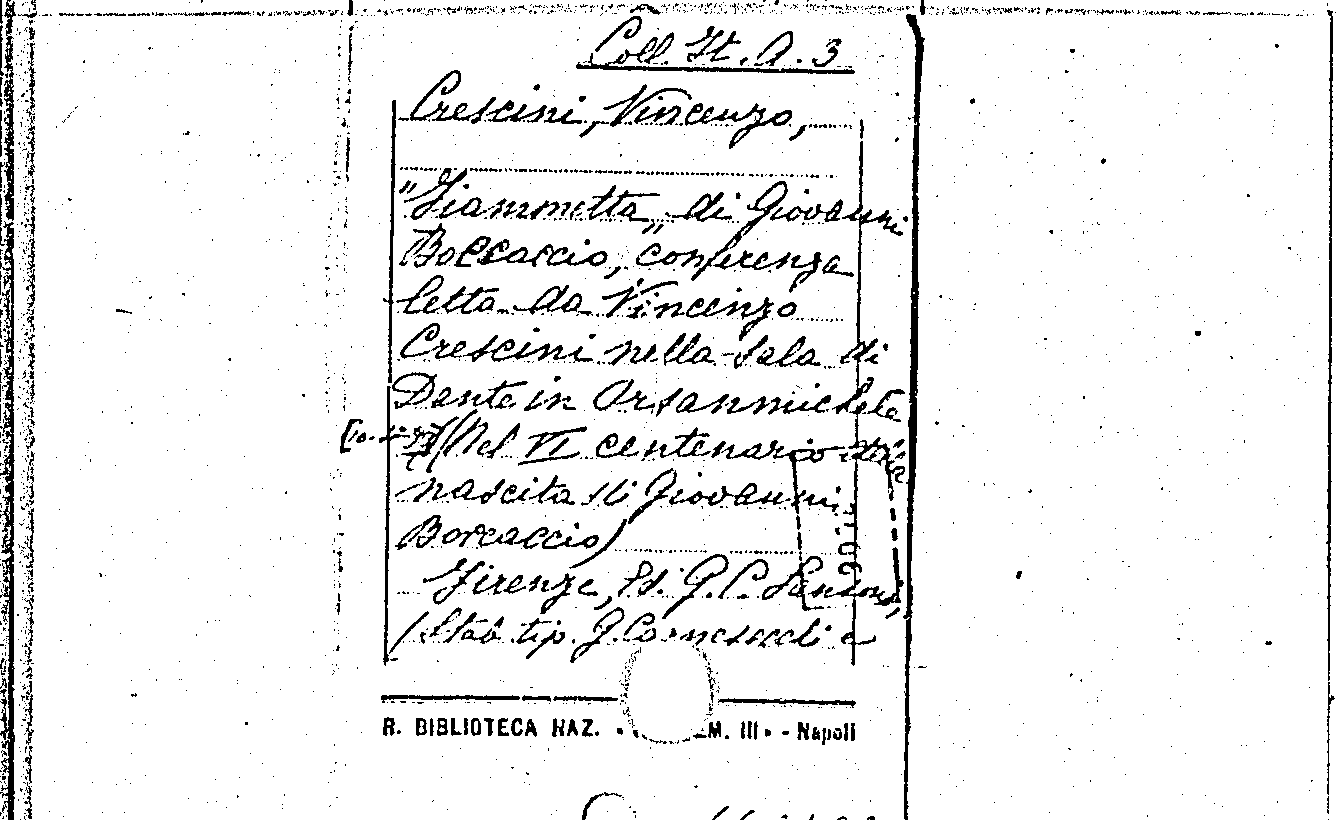 Coll. It. A. 3
Crescini, Vincenzo,
"Fiammetta„ di Giovanni
Boccaccio, conferenza
letta da Vincenzo
Crescini nella sala di
Dante in Orsanmichele
(Nel VI centenario della
nascita di Giovanni
Boccaccio)
Firenze, Ed. G. C. Sansoni,
(Stab. tip. G. Carnesecchi e
R. BIBLIOTECA NAZ. EM. III - Napoli